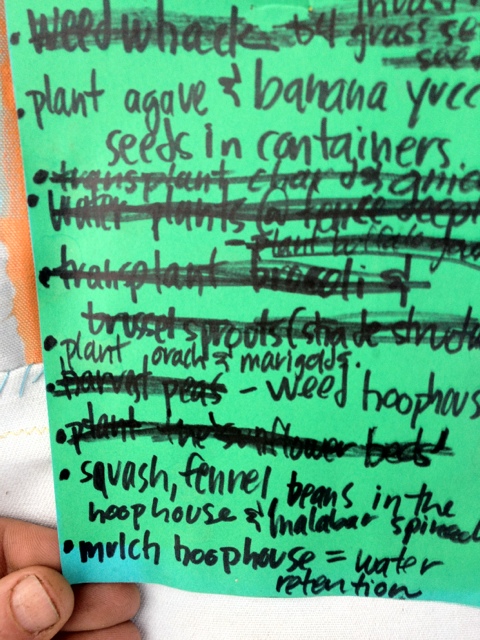 • weedwhack
grass
• plant agave & banana yucc
seeds in containers.
• transplant
• water plants @ fence deep
plant buffalo
• transplant broccoli &
brussel sprouts (shade struct
• plant orach & marigolds.
• harvest peas - weed hoophous
• plant the sunflower beds
• squash, fennel beans in the
hoophouse & malabar spinac
• mulch hoophouse = water
retention